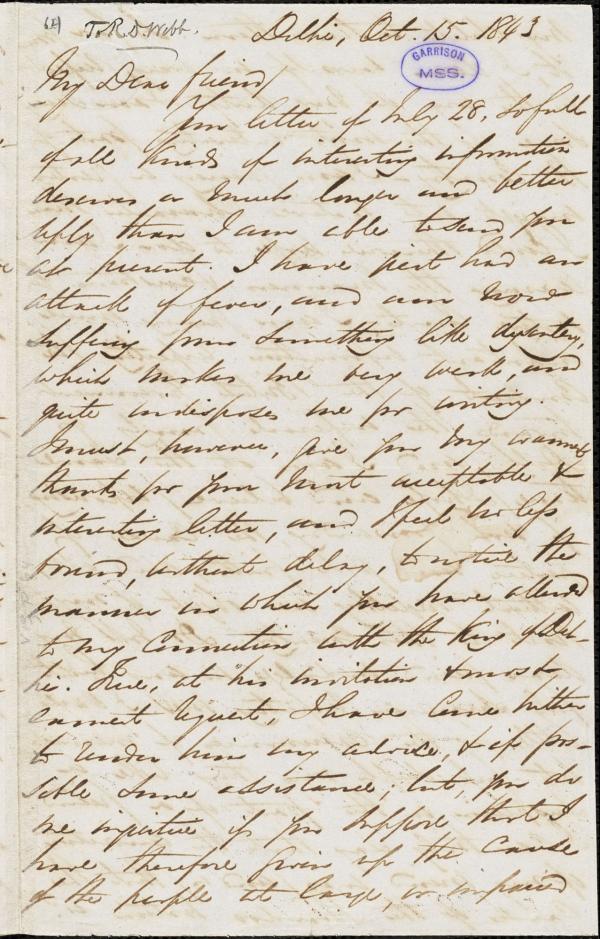 To R. D. Webb.
Delhi, Oct. 15. 1843
GARRISON
MSS.
My Dear friend,
Your letter of July 28, so full
of all kinds of interesting information
deserves a much longer and better
reply than I am able to send you
at present. I have just had an
attack of fever, and am now
suffering from something like dysentery,
which makes me very weak, and
quite indisposes me for writing.
I must, however, give you my warmest
thanks for your most acceptable &
interesting letter, and I feel no less
bound, without delay, to notice the
manner in which you have alluded
to my connection with the King of Del-
hi. True, at his invitation & most
earnest request, I have come hither
to render him my advice, & if pos-
sible some assistance; but, you do
me injustice if you suppose that I
have therefore given up the cause
of the people at large, or impaired